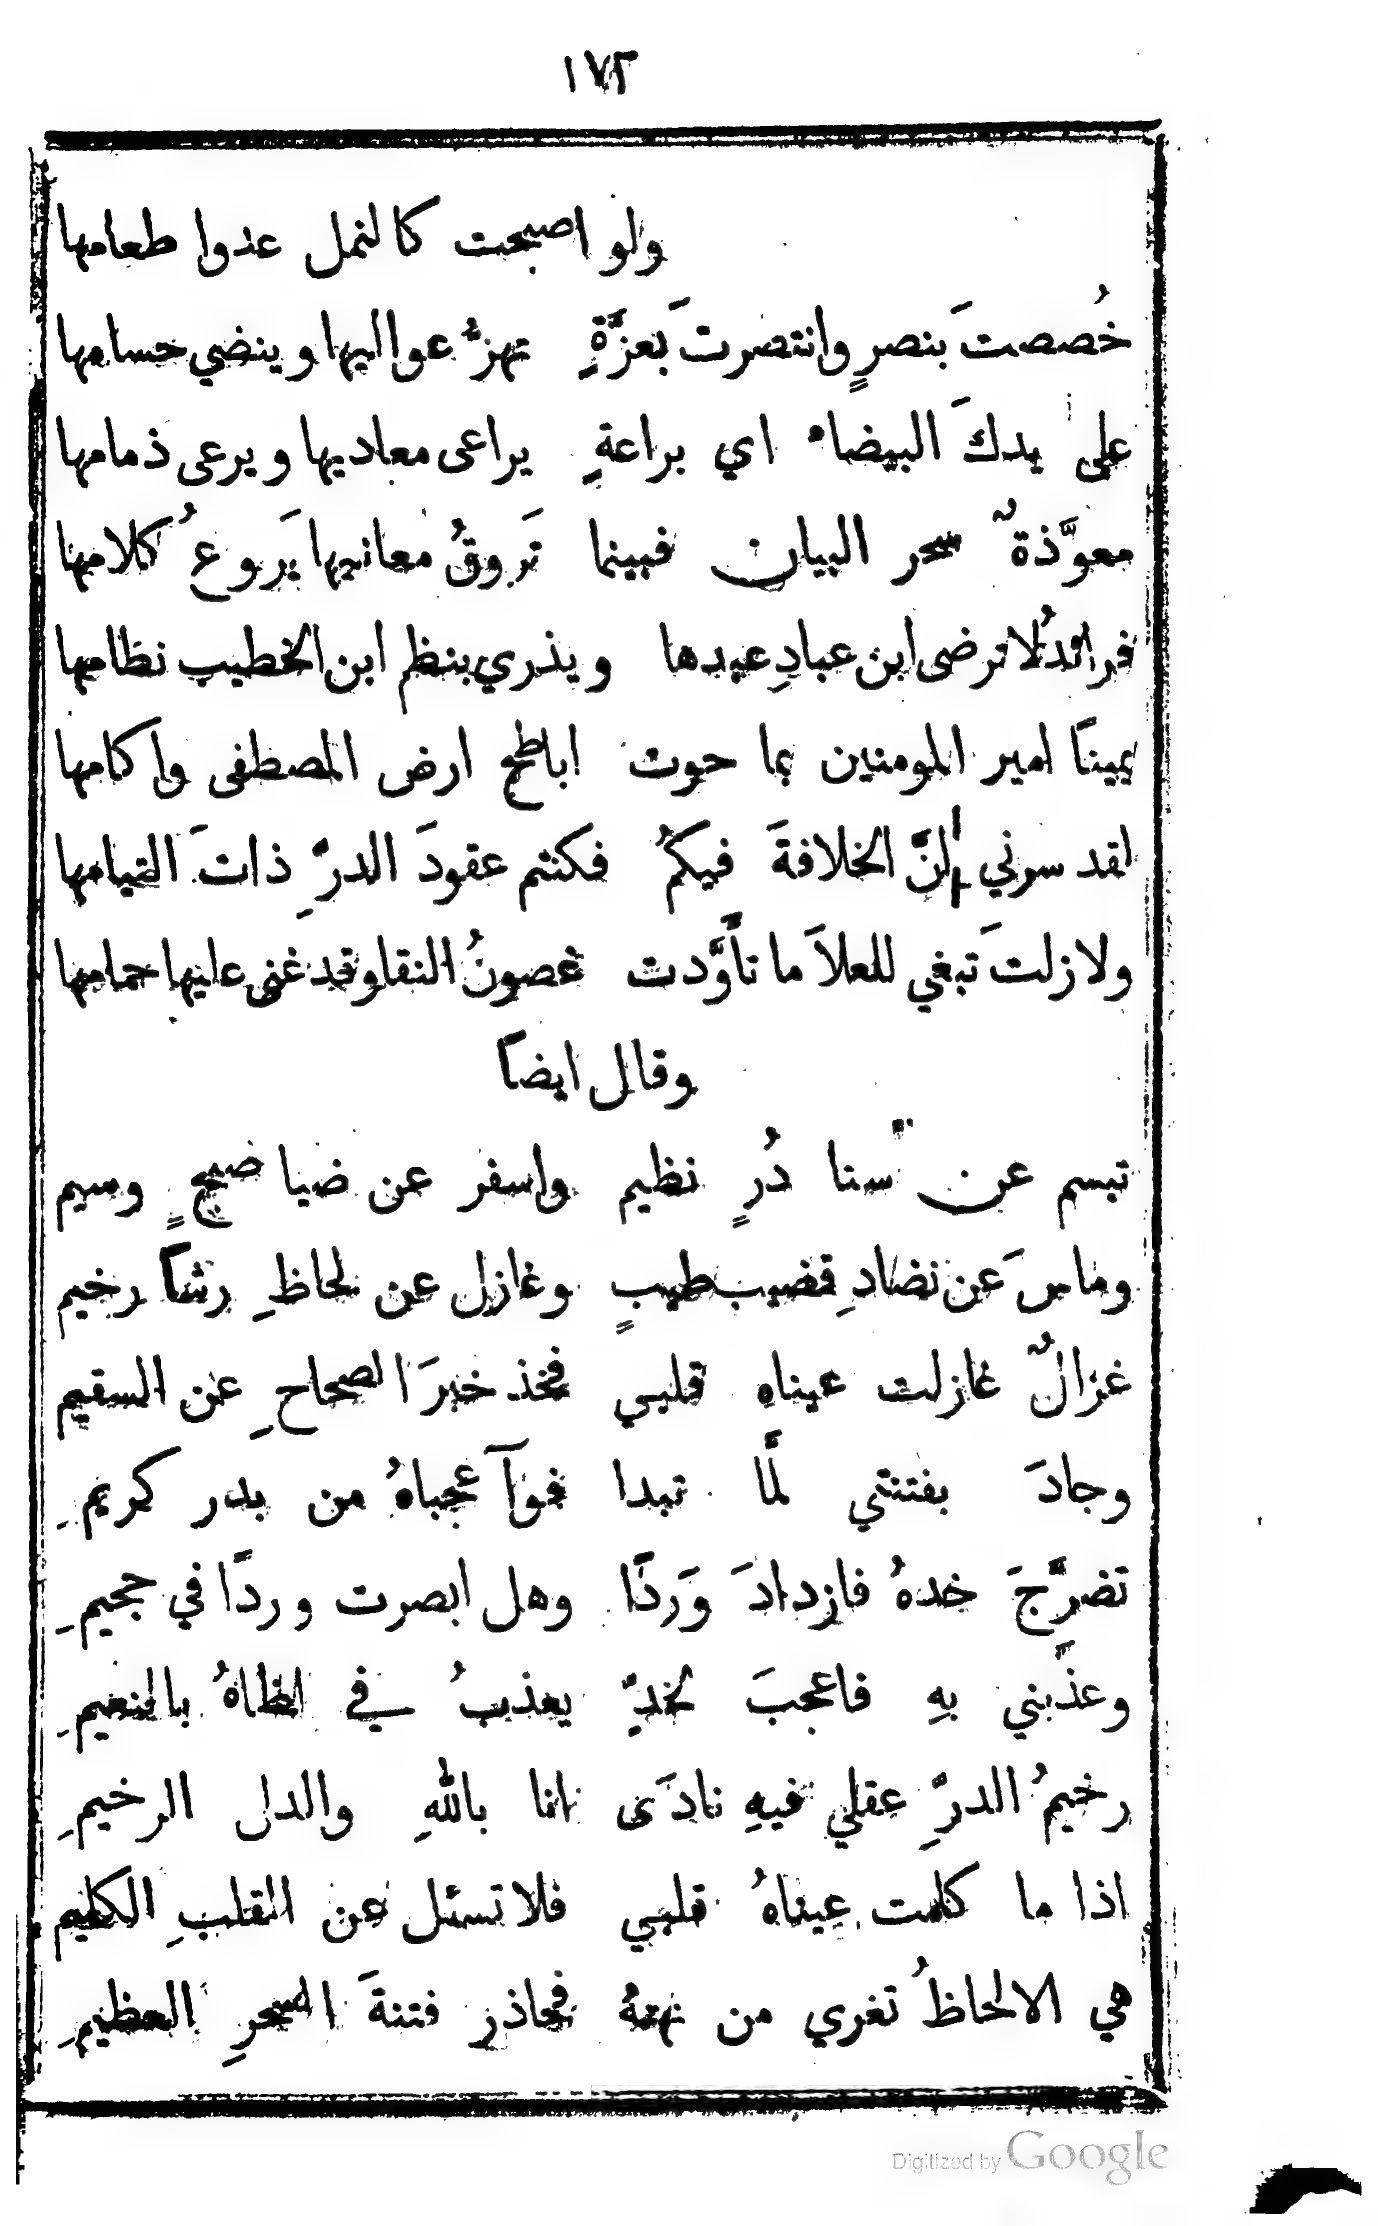 ١٧٢
ولو اصبحت كالنمل عدوا طعامها
خُصصتَ بنصرٍ وانتصرتَ بعزَّةٍ تهزُّ عواليها وينضي حسامها
على يدكَ البيضاء اي براعةٍ يراعى معاديها ويرعى ذمامها
معوَّذةٌ سحر البيان فبينما تَروقُ معانيها يَروعُ كلامها
فرائدُ لا ترضى ابن عبادِ عبدها ويذري بنظم ابن الخطيب نظامها
يمينًا امير المومنين بما حوت اباطح ارض المصطفى واكامها
لقد سرني إنَّ الخلافةَ فيكمُ فكنتم عقودَ الدرِّ ذاتَ التيامها
ولا زلتَ تبغي للعلاَ ما تأوَّدت غصونُ النقا وقد غنى عليها حمامها
وقال ايضاً
تبسم عن سنا دُرٍ نظيم واسفر عن ضيا صبحٍ وسيم
وماس عن نضادِ قضيب طيبٍ وغازل عن لحاظِ رشاً رخيم
غزالٌ غازلت عيناه قلبي فخذ خبرَ الصحاحِ عن السقيم
وجادَ بفتنتي لمَّا تبدا فوآ عجباهُ من بدر كريمِ
تضرَّجَ خدهُ فازدادَ وَردًا وهل ابصرت وردًا في جحيمِ
وعذَّبني بهِ فاعجبَ لخدٍّ يعذبُ في لظاهُ بالنعيمِ
رخيمُ الدرِّ عقلي فيهِ نادَى انا باللهِ والدل الرخيمِ
اذا ما كلمت عيناهُ قلبي فلا تسئل عن القلبِ الكليم
هي الالحاظُ تغري من نهتهُ فحاذر فتنةَ السحرِ العظيمِ
Digitized by Google